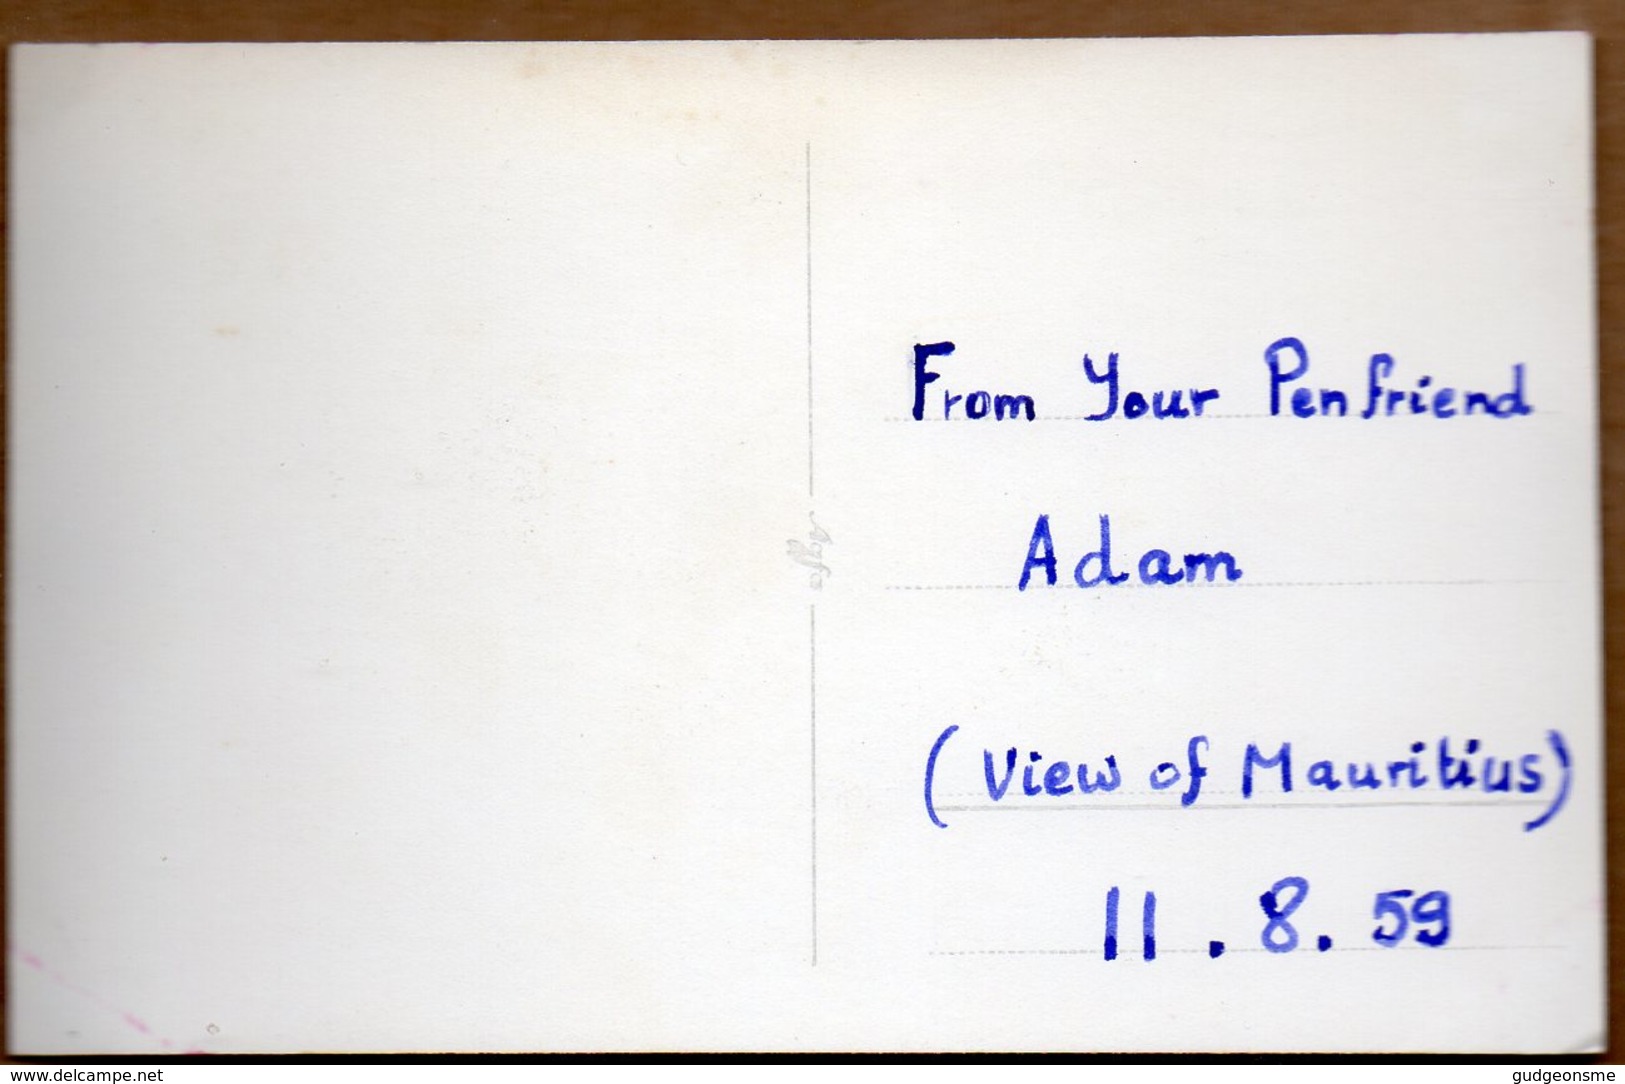 From Your Penfriend
Adam
(View of Mauritius)
11.8.59
Agfa
www.delcampe.net
gudgeonsme